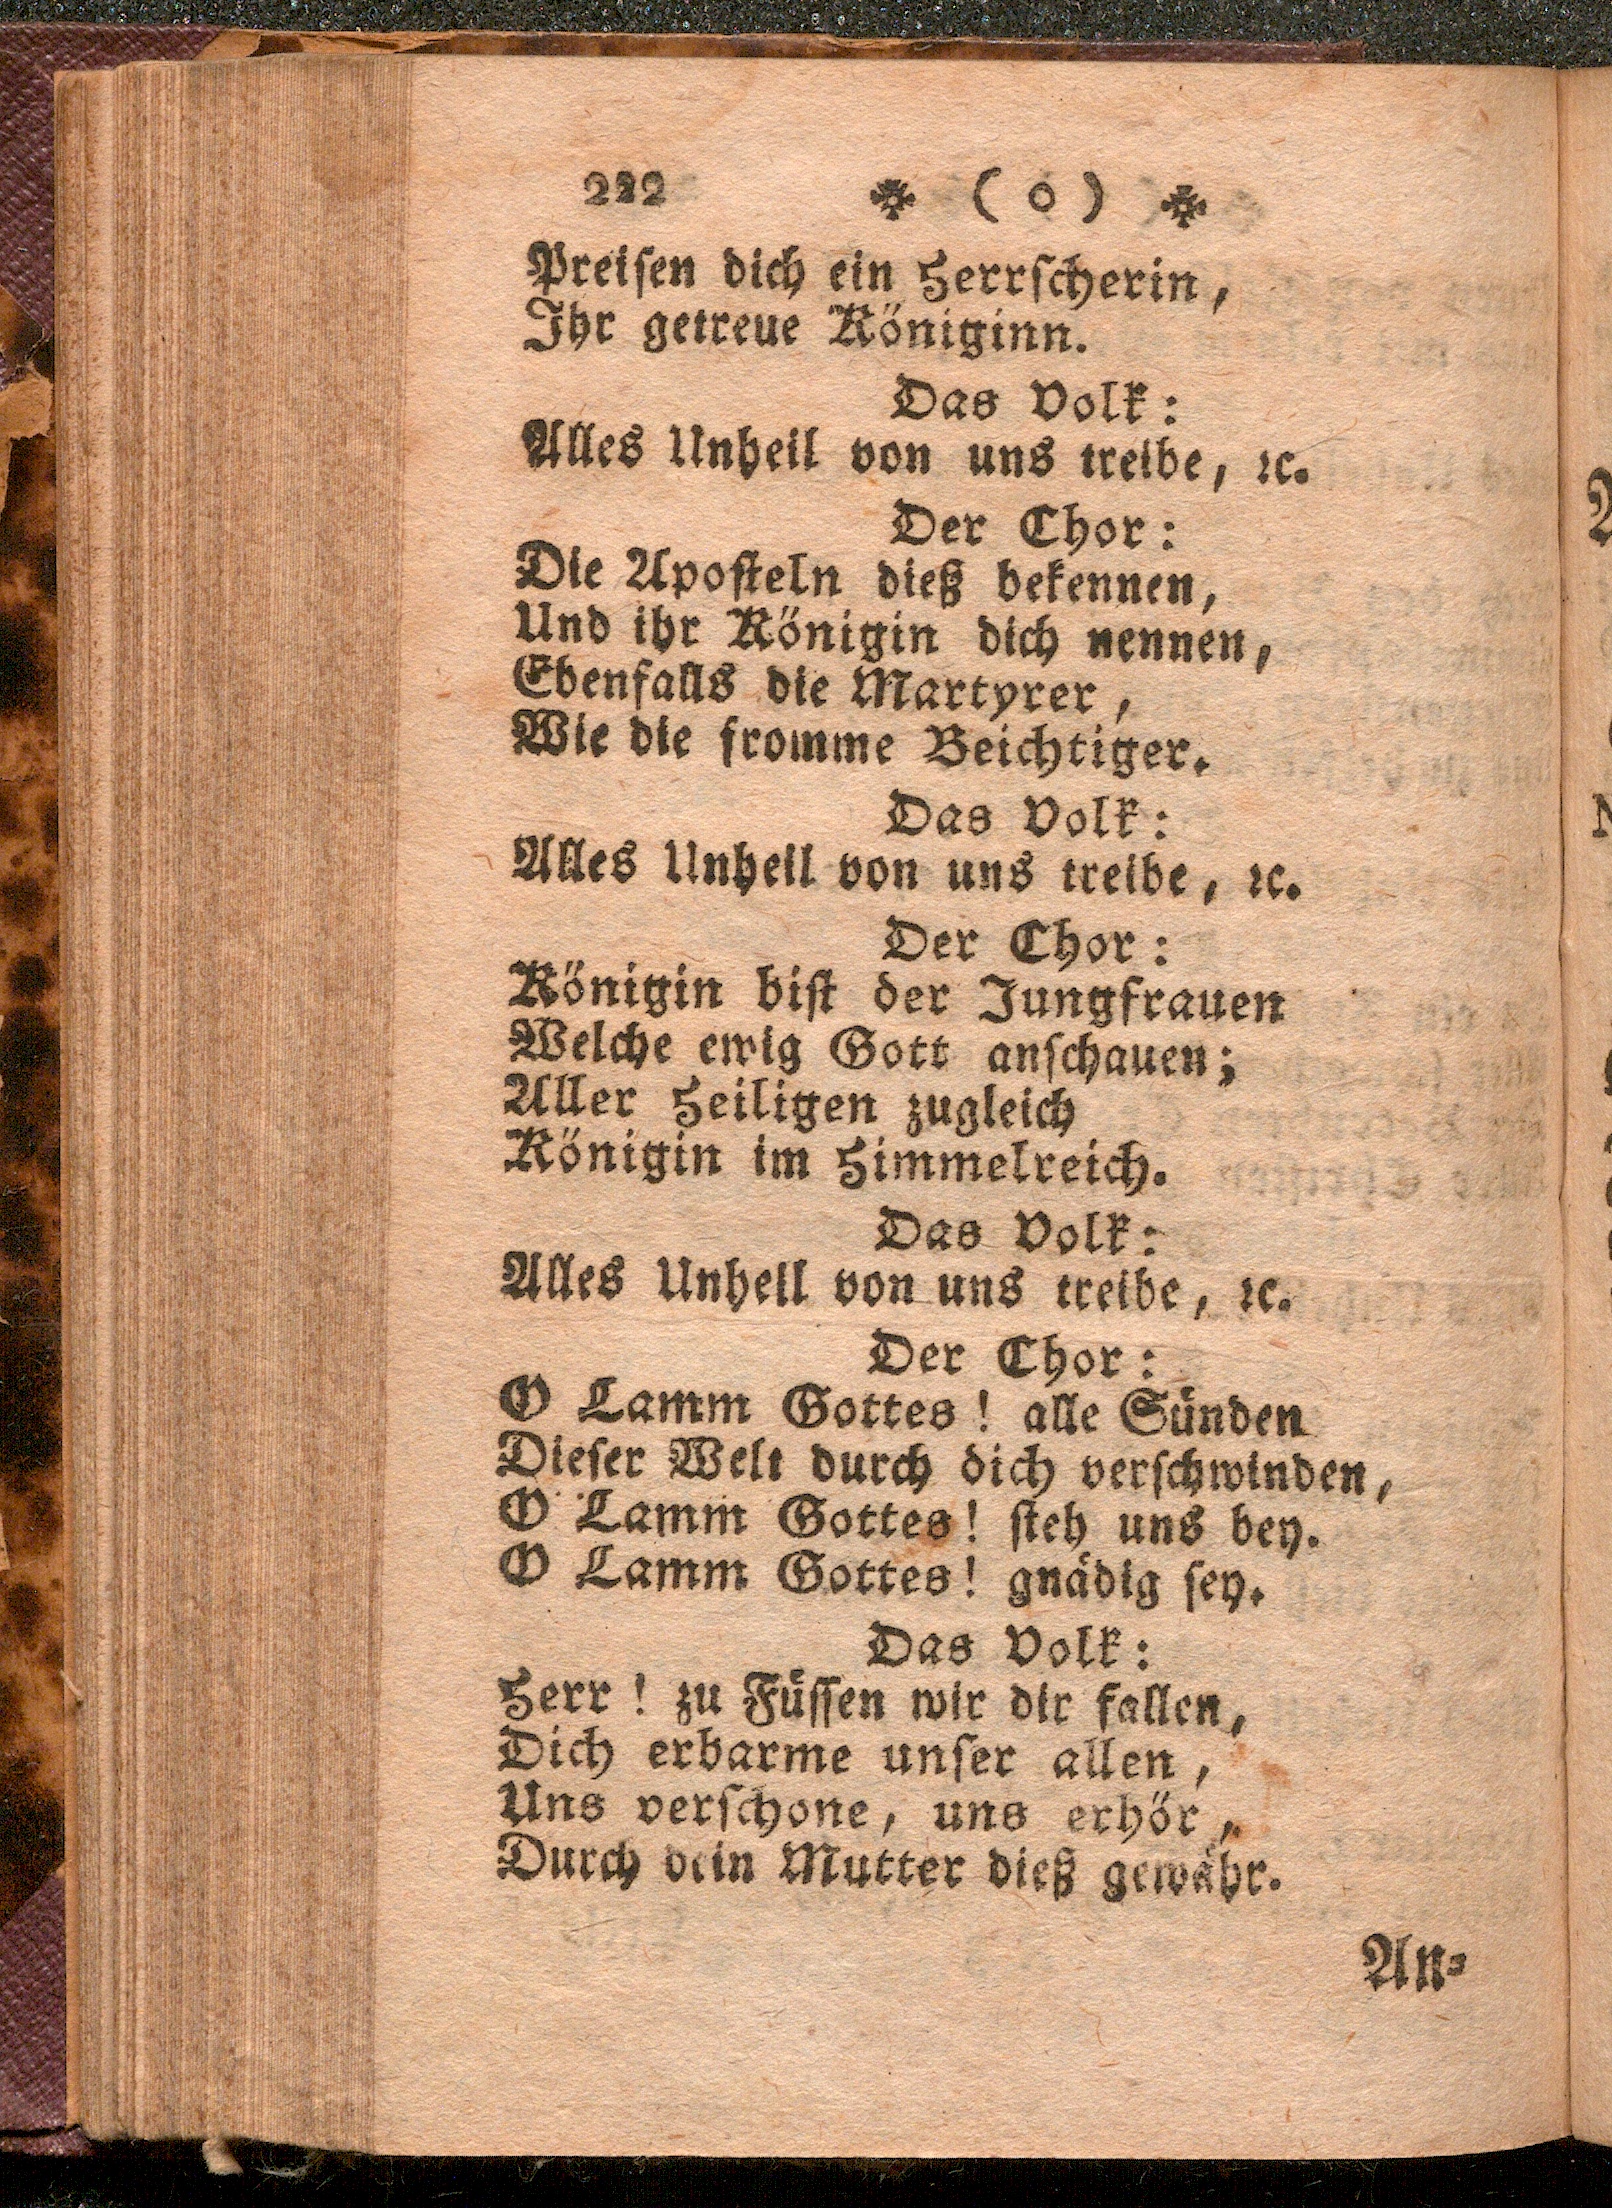 222 ✠ ( o ) ✠
Preiſen dich ein Herrſcherin,
Ihr getreue Königinn.
Das Volk:
Alles Unheil von uns treibe, ꝛc.
Der Chor:
Die Apoſteln dieß bekennen,
Und ihr Königin dich nennen,
Ebenfalls die Martyrer,
Wie die fromme Beichtiger.
Das Volk:
Alles Unheil von uns treibe, ꝛc.
Der Chor:
Königin biſt der Jungfrauen
Welche ewig Gott anſchauen;
Aller Heiligen zugleich
Königin im Himmelreich.
Das Volk:
Alles Unheil von uns treibe, ꝛc.
Der Chor:
O Lamm Gottes! alle Sünden
Dieſer Welt durch dich verſchwinden,
O Lamm Gottes! ſteh uns bey.
O Lamm Gottes! gnädig ſey.
Das Volk:
Herr! zu Füſſen wir dir fallen,
Dich erbarme unſer allen,
Uns verſchone, uns erhör,
Durch dein Mutter dieß gewähr.
An-